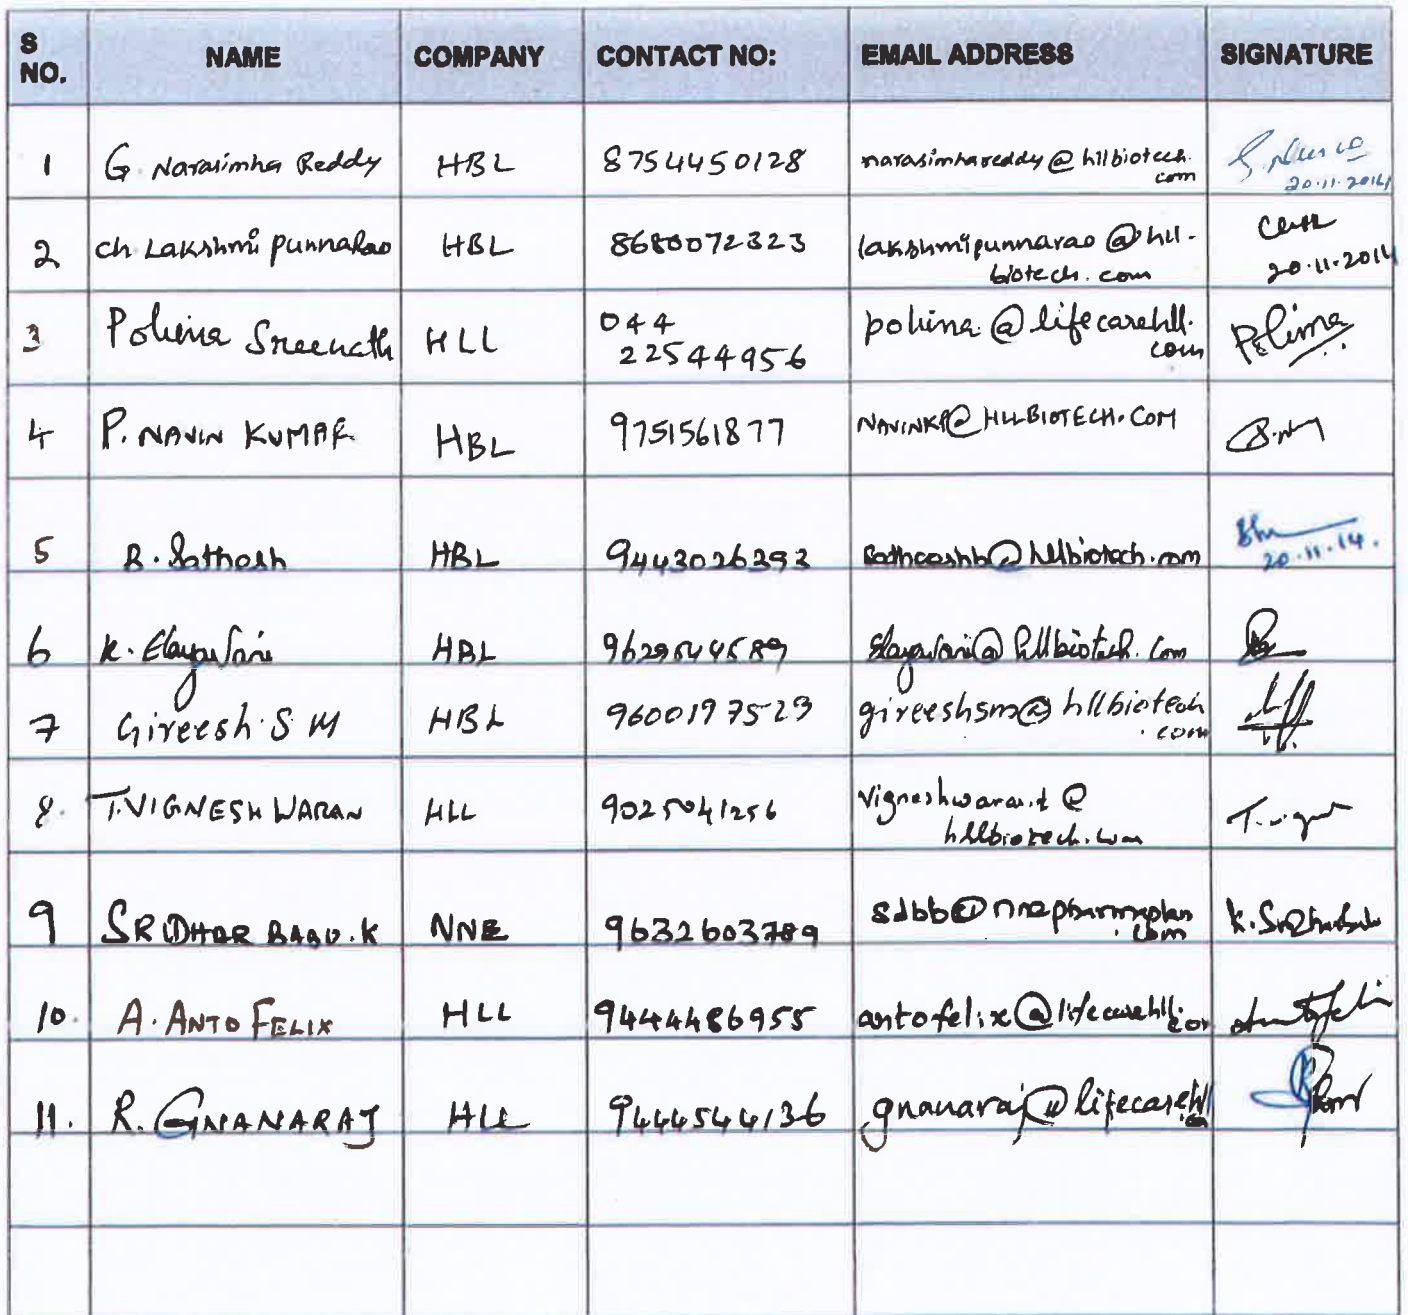 S NO. NAME COMPANY CONTACT NO: EMAIL ADDRESS SIGNATURE
1 G. Narasimha Reddy HBL 8754450128 narasimhareddy@hllbiotech.
com
20.11.2014
2 ch Lakshmi punnaRao HBL 8680072323 lakshmipunnarao@hll-
biotech.com
20.11.2014
3 Polima Sreenath HLL 044
22544956
polima@lifecarehll.
com
Polima
4 P. NAVIN KUMAR HBL 9751561877 NAVINKP@HLLBIOTECH.COM
5 B. Sathesh HBL 9443026293 @hllbiotech.com
20.11.14.
6 K. Elayavani HBL Elayavani@hllbiotech.com
7 Gireesh S M HBL 9600197523 gireeshsm@hllbiotech
.com
8. T.VIGNESHWARAN HLL 9025041256 vigneshwaran.t@
hllbiotech.com
9 SRIDHAR BABU.K NNE 9632603789 sdbb@nnepharmaplan
.com
10. A. ANTO FELIX HLL 9444486955 antofelix@lifecarehll.com
11. R. GNANARAJ HLL 9444544136 gnanaraj@lifecarehll